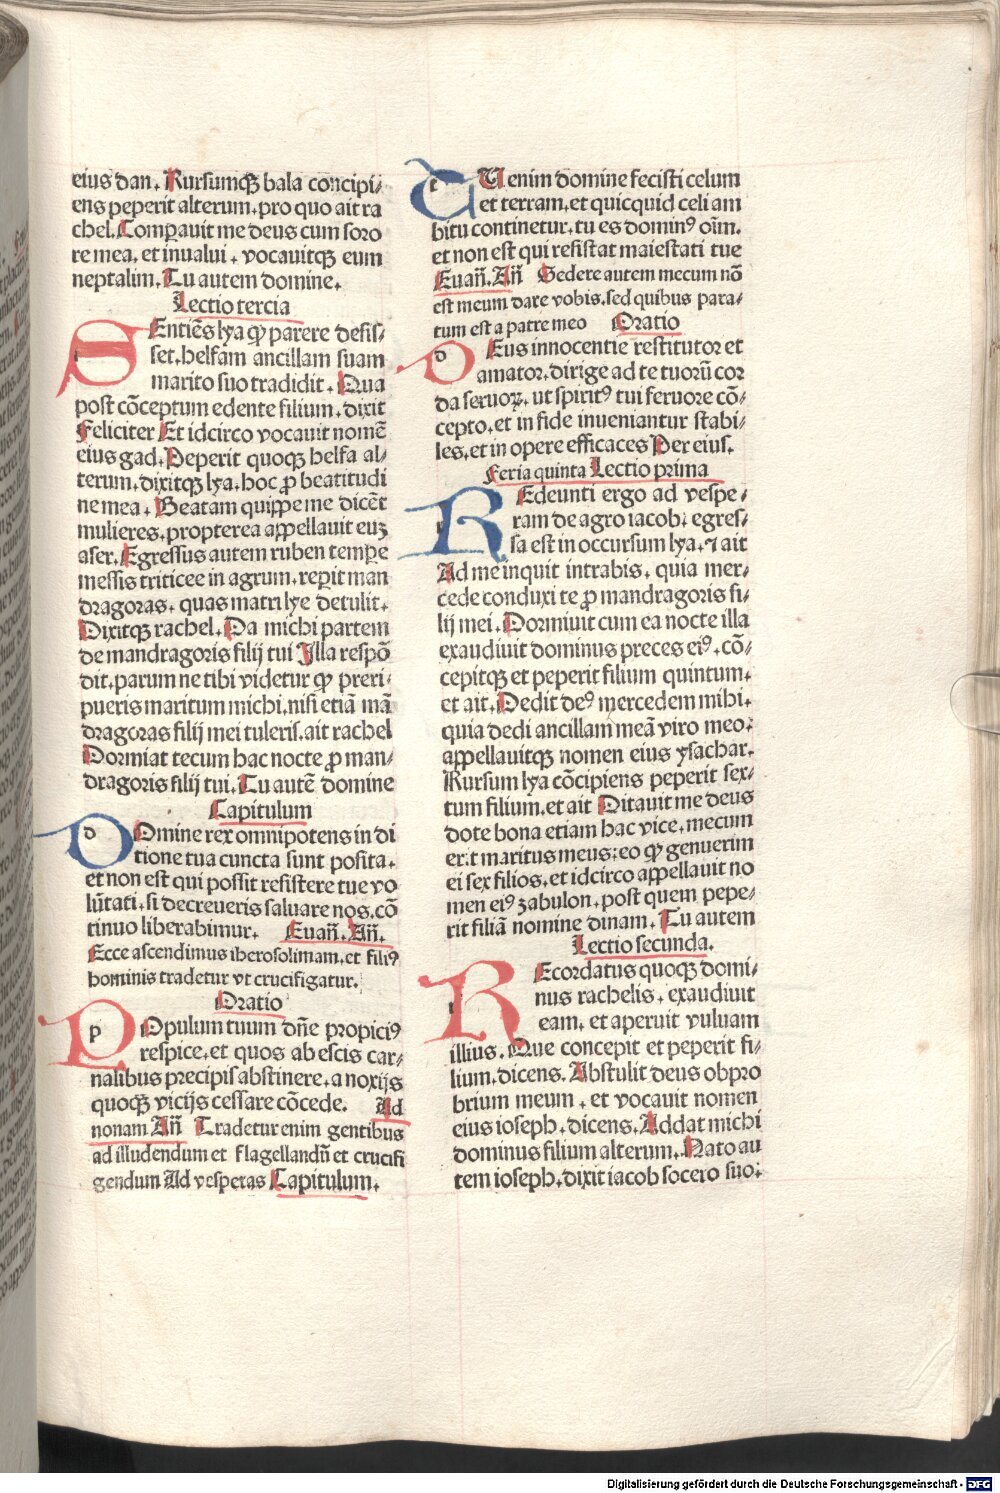 eius dan. Rursumqꝫ bala concipi⸗
ens peperit alterum, pro quo ait ra
chel. Cōꝑauit me deus cum soro
re mea, et inualui, vocauitqꝫ eum
neptalim. Tu autem domine.
Lectio tercia
SEntiēs lya ꝙ parere desis⸗
set, helfam ancillam suam
marito suo tradidit. Qua
post cōceptum edente filium, dixit
Feliciter Et idcirco vocauit nomē
eius gad. Peperit quoqꝫ helfa al⸗
terum, dixitqꝫ lya, hoc ꝓ beatitudi
ne mea. Beatam quippe me dicēt
mulieres, propterea appellauit euꝫ
aser. Egressus autem ruben tempe
messis triticee in agrum, repit man
dragoras, quas matri lye detulit.
Dixitqꝫ rachel. Da michi partem
de mandragoris filij tui Illa respō
dit, parum ne tibi videtur ꝙ preri⸗
pueris maritum michi, nisi etiā mā
dragoras filij mei tuleris, ait rachel
Dormiat tecum hac nocte ꝓ man⸗
dragoris filij tui. Tu autē domine
Capitulum
DOmine rex omnipotens in di
tione tua cuncta sunt posita,
et non est qui possit resistere tue vo
lūtati, si decreueris saluare nos, cō
tinuo liberabimur. Euañ. Añ.
Ecce ascendimus iherosolimam, et filiꝰ
hominis tradetur vt crucifigatur.
Oratio
p POpulum tuum dñe propiciꝰ
respice, et quos ab escis car⸗
nalibus precipis abstinere, a noxijs
quoqꝫ vicijs cessare cōcede. Ad
nonam Añ Tradetur enim gentibus
ad illudendum et flagellandū et crucifi
gendum Ad vesperas Capitulum.
TU enim domine fecisti celum
et terram, et quicquid celi am
bitu continetur, tu es dominꝰ oīm,
et non est qui resistat maiestati tue
Euañ. Añ Sedere autem mecum nō
est meum dare vobis, sed quibus para⸗
tum est a patre meo Oratio
DEus innocentie restitutor et
amator, dirige ad te tuorū cor
da seruoꝝ, ut spiritꝰ tui feruore cō⸗
cepto, et in fide inueniantur stabi⸗
les, et in opere efficaces Per eius.
Feria quinta Lectio prima
REdeunti ergo ad vespe⸗
ram de agro iacob, egres⸗
sa est in occursum lya, ⁊ ait
Ad me inquit intrabis, quia mer⸗
cede conduxi te ꝓ mandragoris fi⸗
lij mei. Dormiuit cum ea nocte illa
exaudiuit dominus preces eiꝰ, cō⸗
cepitqꝫ et peperit filium quintum,
et ait. Dedit deꝰ mercedem mihi,
quia dedi ancillam meā viro meo,
appellauitqꝫ nomen eius ysachar.
Rursum lya cōcipiens peperit sex⸗
tum filium, et ait Ditauit me deus
dote bona etiam hac vice, mecum
erit maritus meus, eo ꝙ genuerim
ei sex filios, et idcirco appellauit no
men eiꝰ zabulon, post quem pepe⸗
rit filiā nomine dinam. Tu autem
Lectio secunda.
REcordatus quoqꝫ domi⸗
nus rachelis, exaudiuit
eam, et aperuit vuluam
illius. Que concepit et peperit fi⸗
lium, dicens. Abstulit deus obpro
brium meum, et vocauit nomen
eius ioseph, dicens. Addat michi
dominus filium alterum. Nato au
tem ioseph, dixit iacob socero suo.
Digitalisierung gefördert durch die Deutsche Forschungsgemeinschaft - DFG